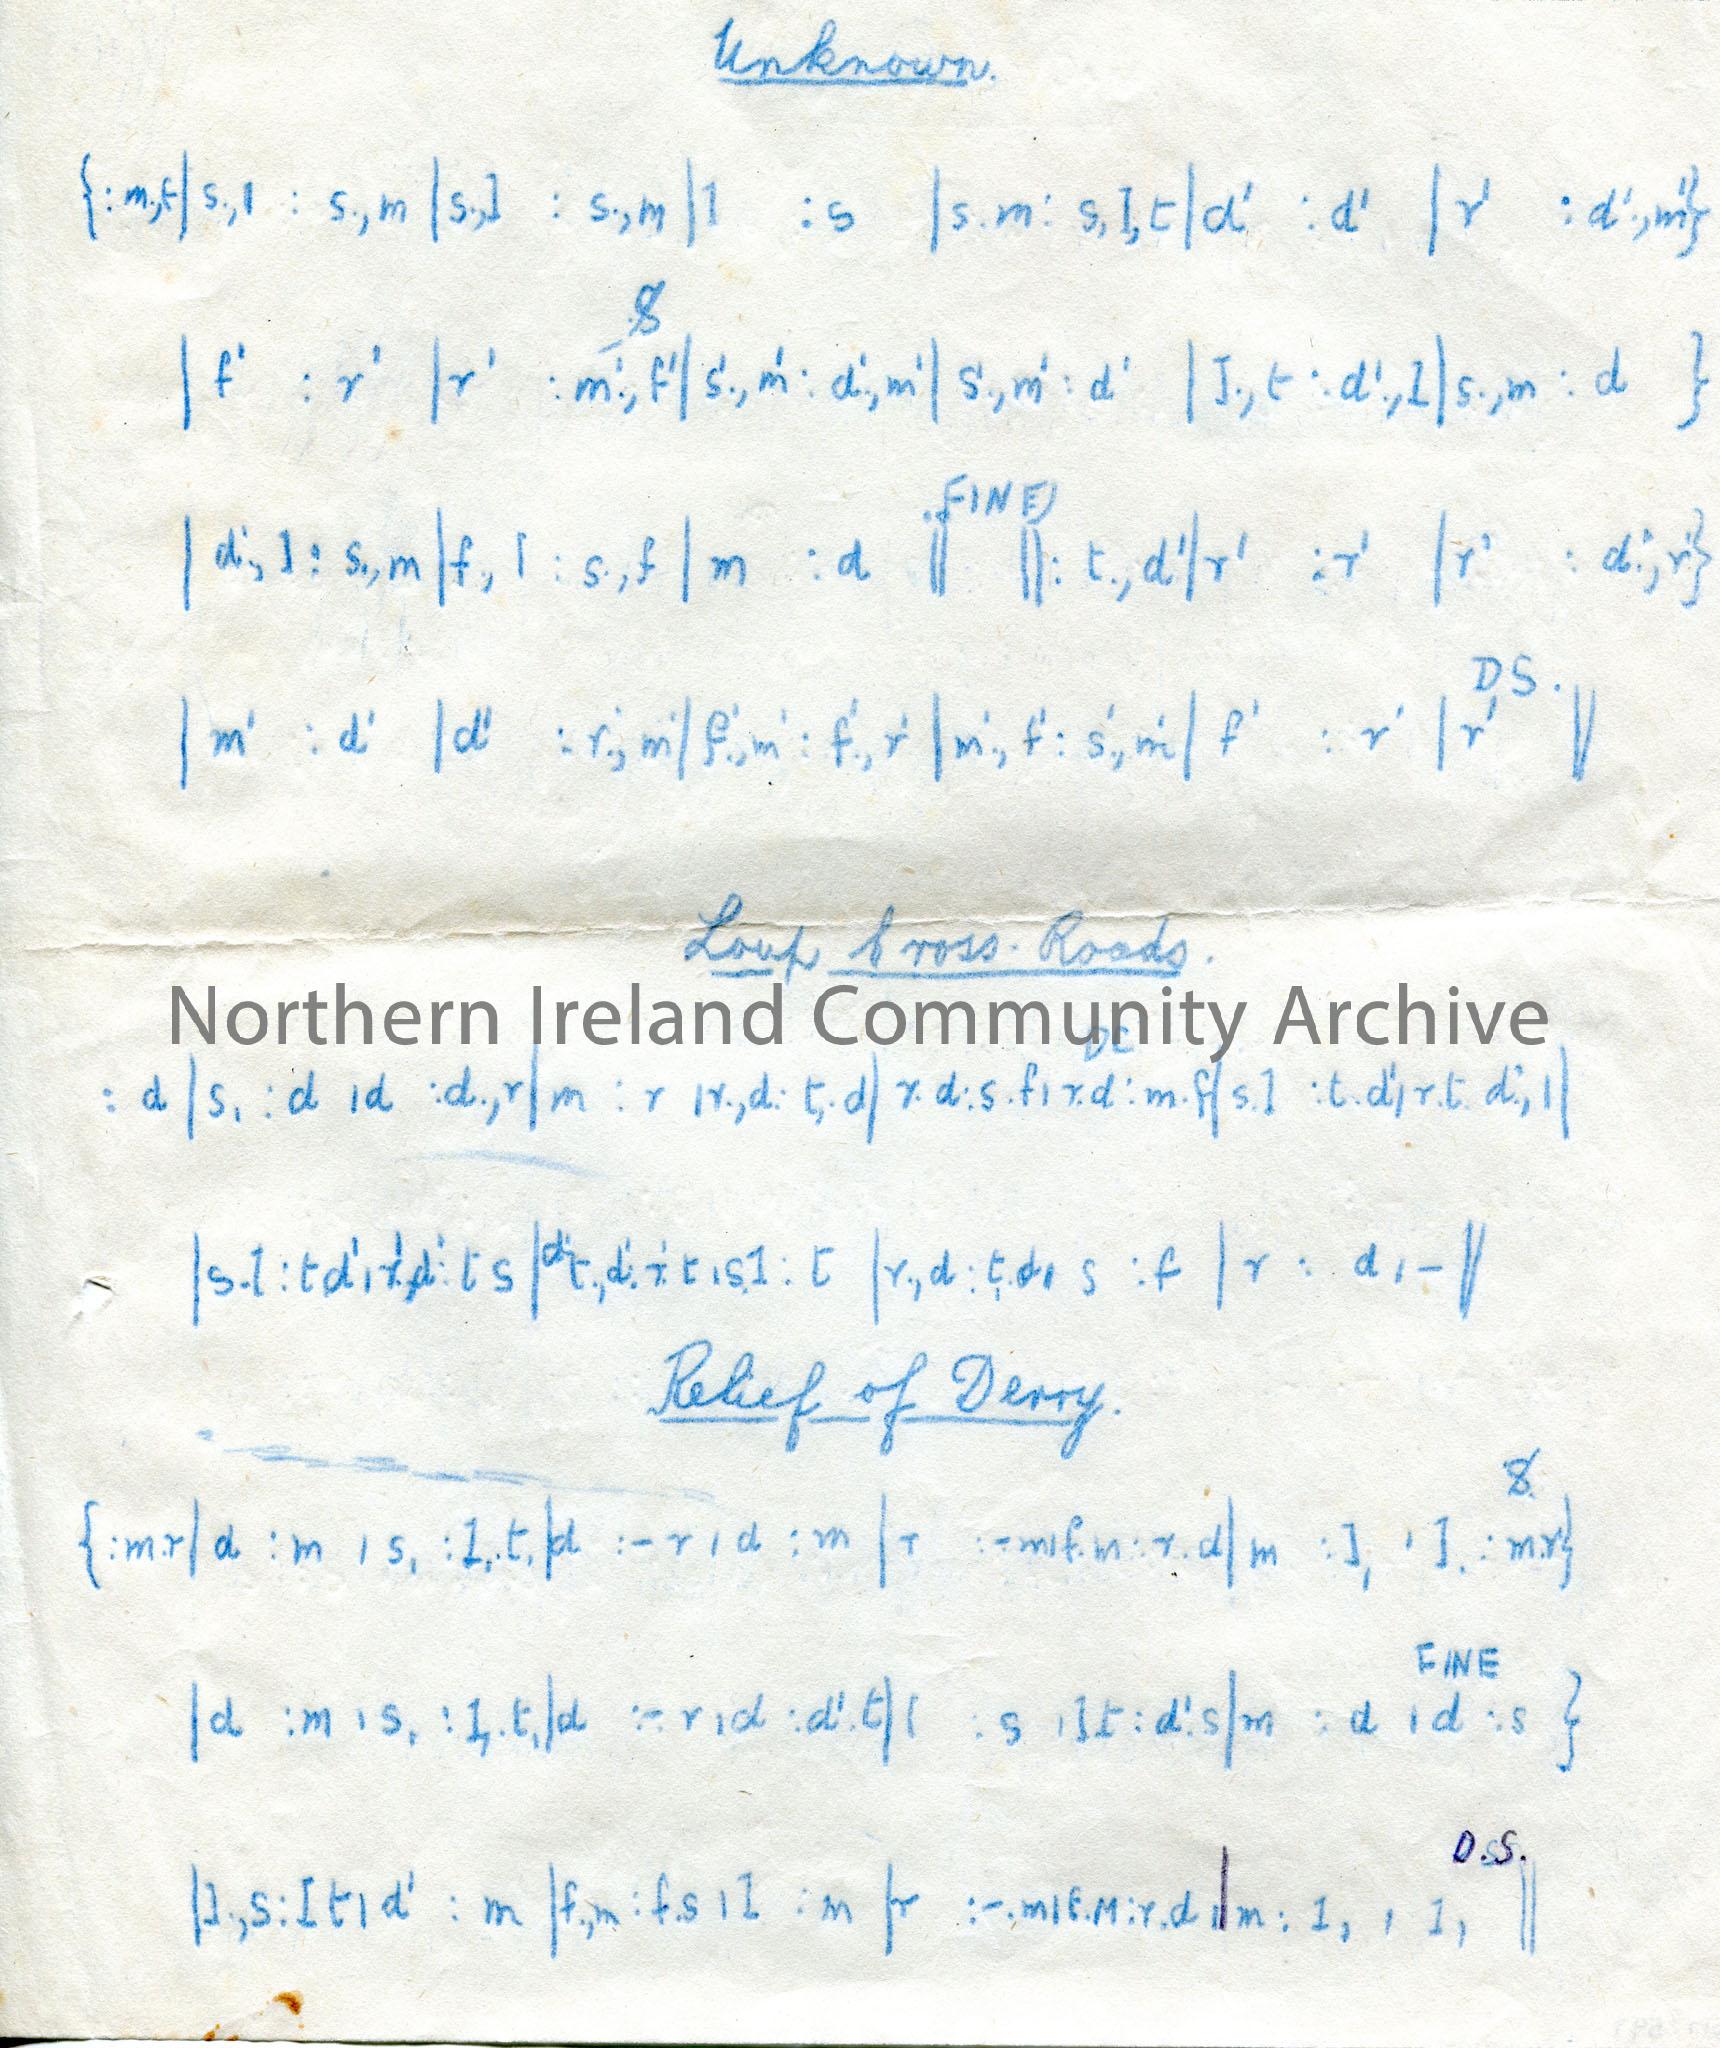 Unknown.
{: m.,f | s.,l : s.,m | s.,l : s.,m | l : s | s.m : s,l,t | d' : d' | r' : d'.,m' }
| f' : r' | r' : m'.,f' | s'.,m' : d'.,m' | s'.,m' : d' | l.,t : d'.,l | s.,m : d }
| d'.,l : s.,m | f.,l : s.,f | m : d || FINE ||: t.,d' | r' : r' | r' : d'.,r' }
| m' : d' | d' : r'.,m' | f'.,m' : f'.,r' | m'.,f' : s'.,m' | f' : r' | r' DS. ||
Loup Cross Roads.
Northern Ireland Community Archive
DC
: d | s, : d , d : d.,r | m : r , r.,d : t,.d | r.d : s.f , r.d : m.f | s.l : t.d' , r.t. d'.,l |
| s.l : t d' , r'.d' : t s | d' t.,d'.r' t , s l : t | r.,d : t,.d , s : f | r : d , – ||
Relief of Derry.
{: m.r | d : m , s, : l,.t, | d : – r , d : m | r : – m , f.m : r.d | m : l, , l, : m.r }
FINE
| d : m , s, : l,.t, | d : – r , d : d'.t | l : s , l.t : d'.s | m : d , d : s }
D.S.
| l.,s : l t , d' : m | f.,m : f.s , l : m | r : –.m , f.m : r.d | m : l, , l, ||